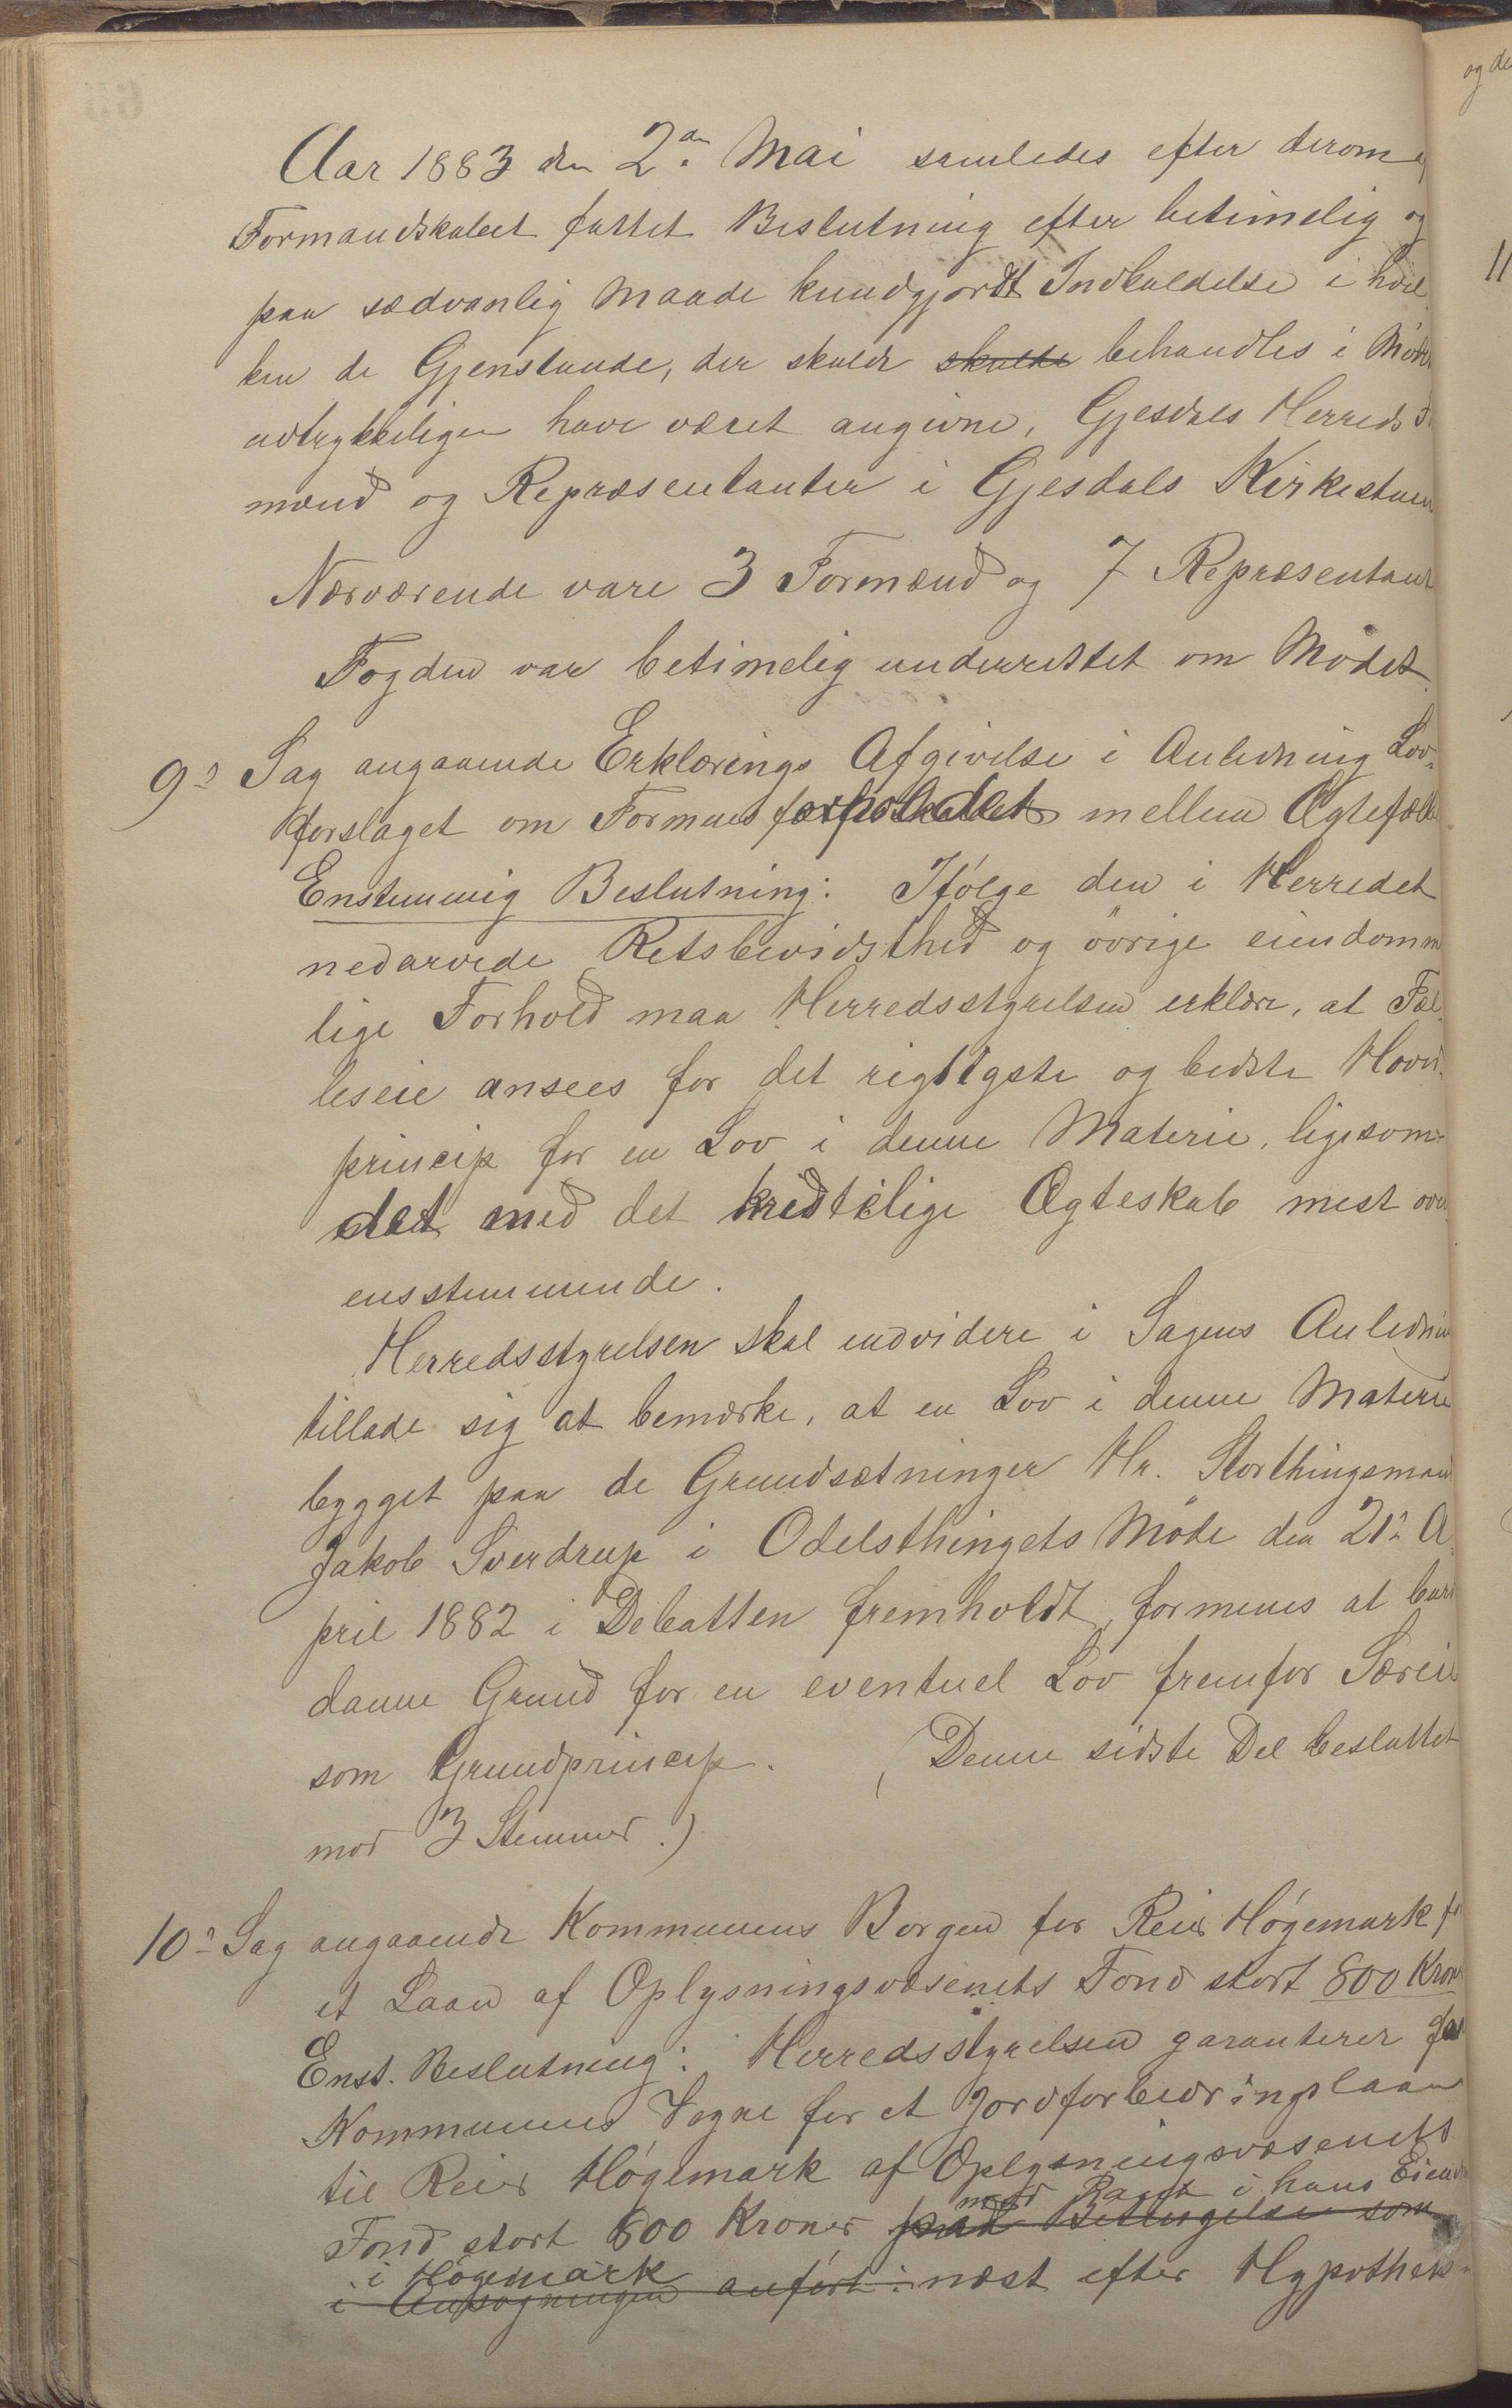 Aar 1883 den 2den Mai samledes efter derom a
Formandskabet fattet Beslutning efter betimelig og
paa sædvanlig Maade kundgjordt Indkaldelse i hvil
ken de Gjenstande, der skulde skulde behandles i Møde
udtrykkeligen have været angivne, Gjesdals Herreds F
mænd og Repræsentanter i Gjesdals Kirkestue
Nærværende vare 3 Formænd og 7 Repræsentant
Fogden var betimelig underrettet om Mødet.
9: Sag angaaende Erklærings Afgivelse i Anledning Lov-
forslaget om Formues forholdet mellem Ægtefæll
Enstemmig Beslutning: Ifølge den i Herredet
nedarvede Retsbevidsthed og øvrige eiendomm
lige Forhold maa Herredsstyrelsen erklære, at Fæl
leseie ansees for det rigtigste og bedste Hoved
princip for en Lov i denne Materie, ligesom
det med det kristelige Ægteskab mest over
ensstemmende.
Herredsstyrelsen skal endvidere i Sagens Anlednin
tillade sig at bemærke, at en Lov i denne Materie
bygget paa de Grundsætninger Hr. Storthingsmand
Jakob Sverdrup i Odelsthingets Møde den 21: A
pril 1882 i Debatten fremholdt, formenes at burd
danne Grund for en eventuel Lov fremfor Særeie
som Grundprincip. (Denne sidste Del besluttet
mod 3 Stemmer.)
10: Sag angaaende Kommunens Borgen for Reier Høgemark f
et Laan af Oplysningsvæsenets Fond stort 800 Kron
Enst. Beslutning: Herredsstyrelsen garanterer paa
Kommunens Vegne for et Jordforbedringslaan
til Reier Høgemark af Oplysningsvæsenets
med Pant i hans Eiend
Fond stort 800 Kroner paa Betingelse som
i Høgemark
i Ansøgningen anført: næst efter Hypothek-
og de
11